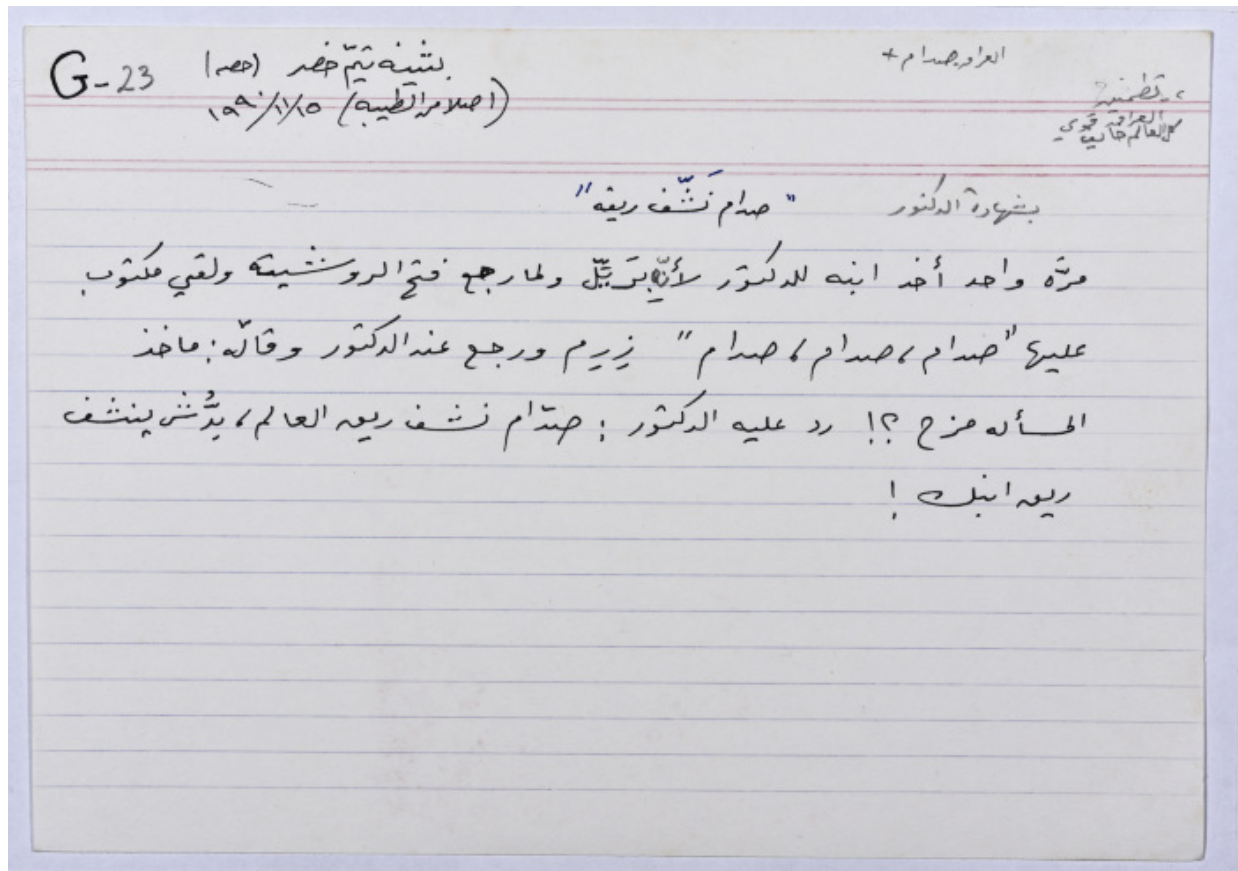 G-23
بثينه تيّم خضر (حصه)
(اصلا من الطيبه) ١٩٩٠/١١/١٥
العراق، صدام +
تطمين
العراق قوي
كل العالم خايف
بشهادة الدكتور " صدام نَشَّف ريقه "
مرَّه واحد أخد ابنه للدكتور لأنّه بَريِّل ولما رجع فتح الروشيته ولقي مكتوب
عليها "صدام، صدام، صدام" زِرِم ورجع عند الدكتور وقالّه: ماخذ
المسأله مزح ؟!! رد عليه الدكتور : صدّام نشف ريق العالم، بدُّش ينشف
ريق ابنك !